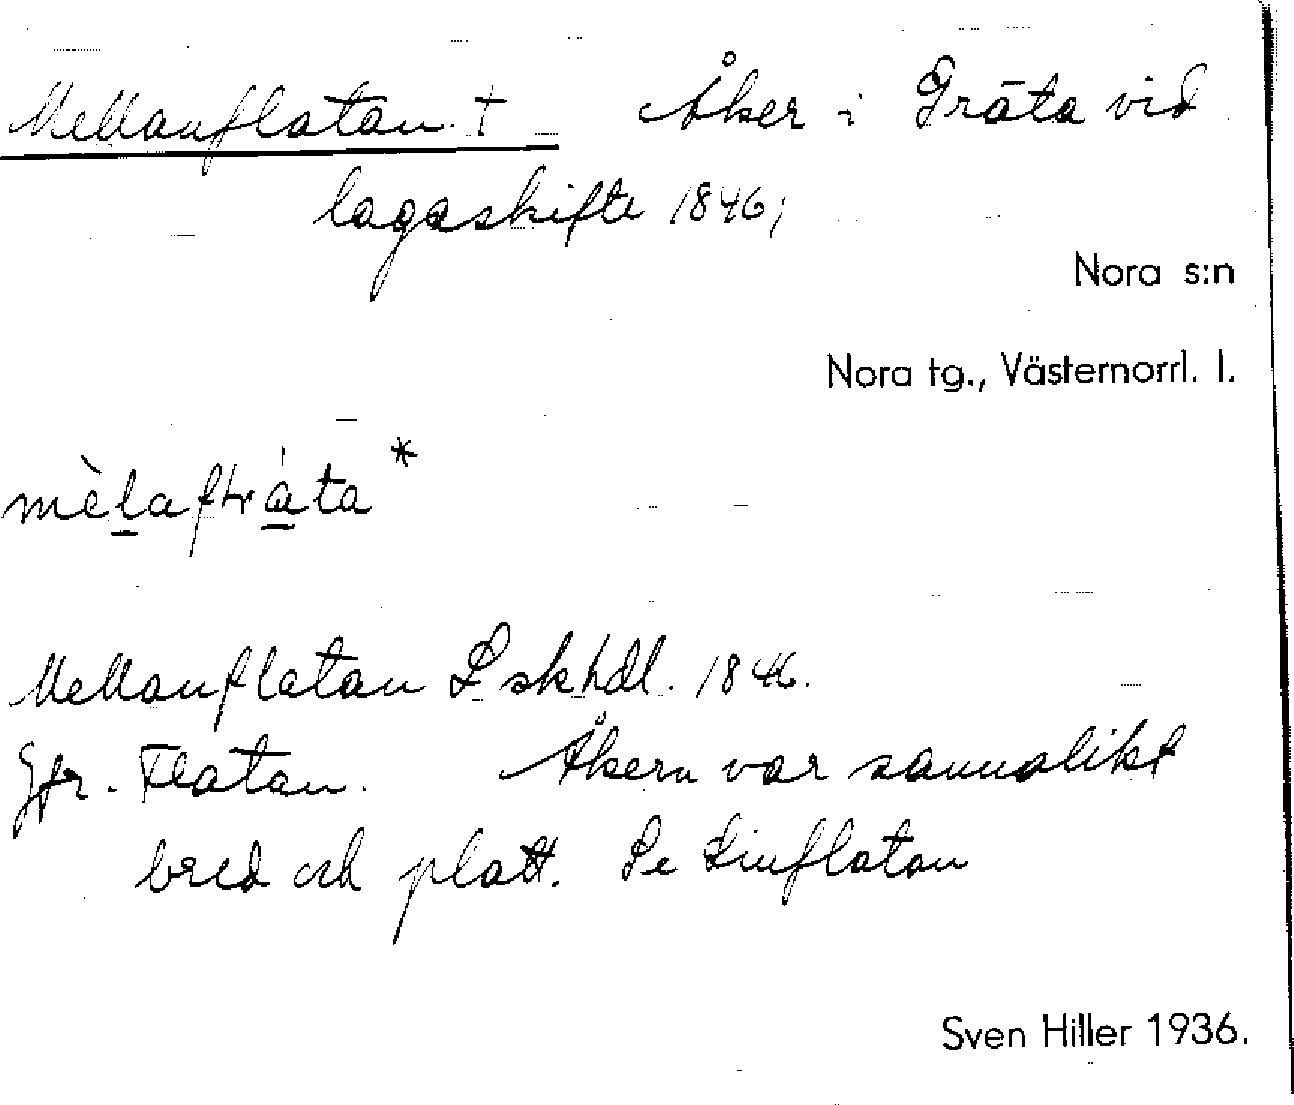 Mellanflatan † Åker i Gräta vid
lagaskifte 1846;
Nora s:n
Nora tg., Västernorrl. l.
Mellanflatan L skhdl. 1846.
Jfr. Flatan. Åkern var sannolikt
bred och platt. Se Linflatan
Sven Hiller 1936.